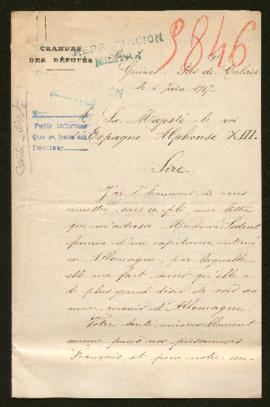 CHAMBRE
DES DÉPUTÉS
REPRESENTACION
MILITAR
9846
Guines Pas de Calais
le 1917
Pedir informes
Devolver
A Sa Majesté le roi
Espagne, Alphonse XIII.
Sire
J'ai l'honneur de vous
remettre, sous ce pli, une lettre
que m'adresse Madame
femme d'un capitaine interné
en Allemagne, par laquelle
elle me fait savoir qu'elle a
le plus grand désir de voir son
mari revenir d'Allemagne.
Votre bonté universellement
connue pour nos prisonniers
Français et pour notre